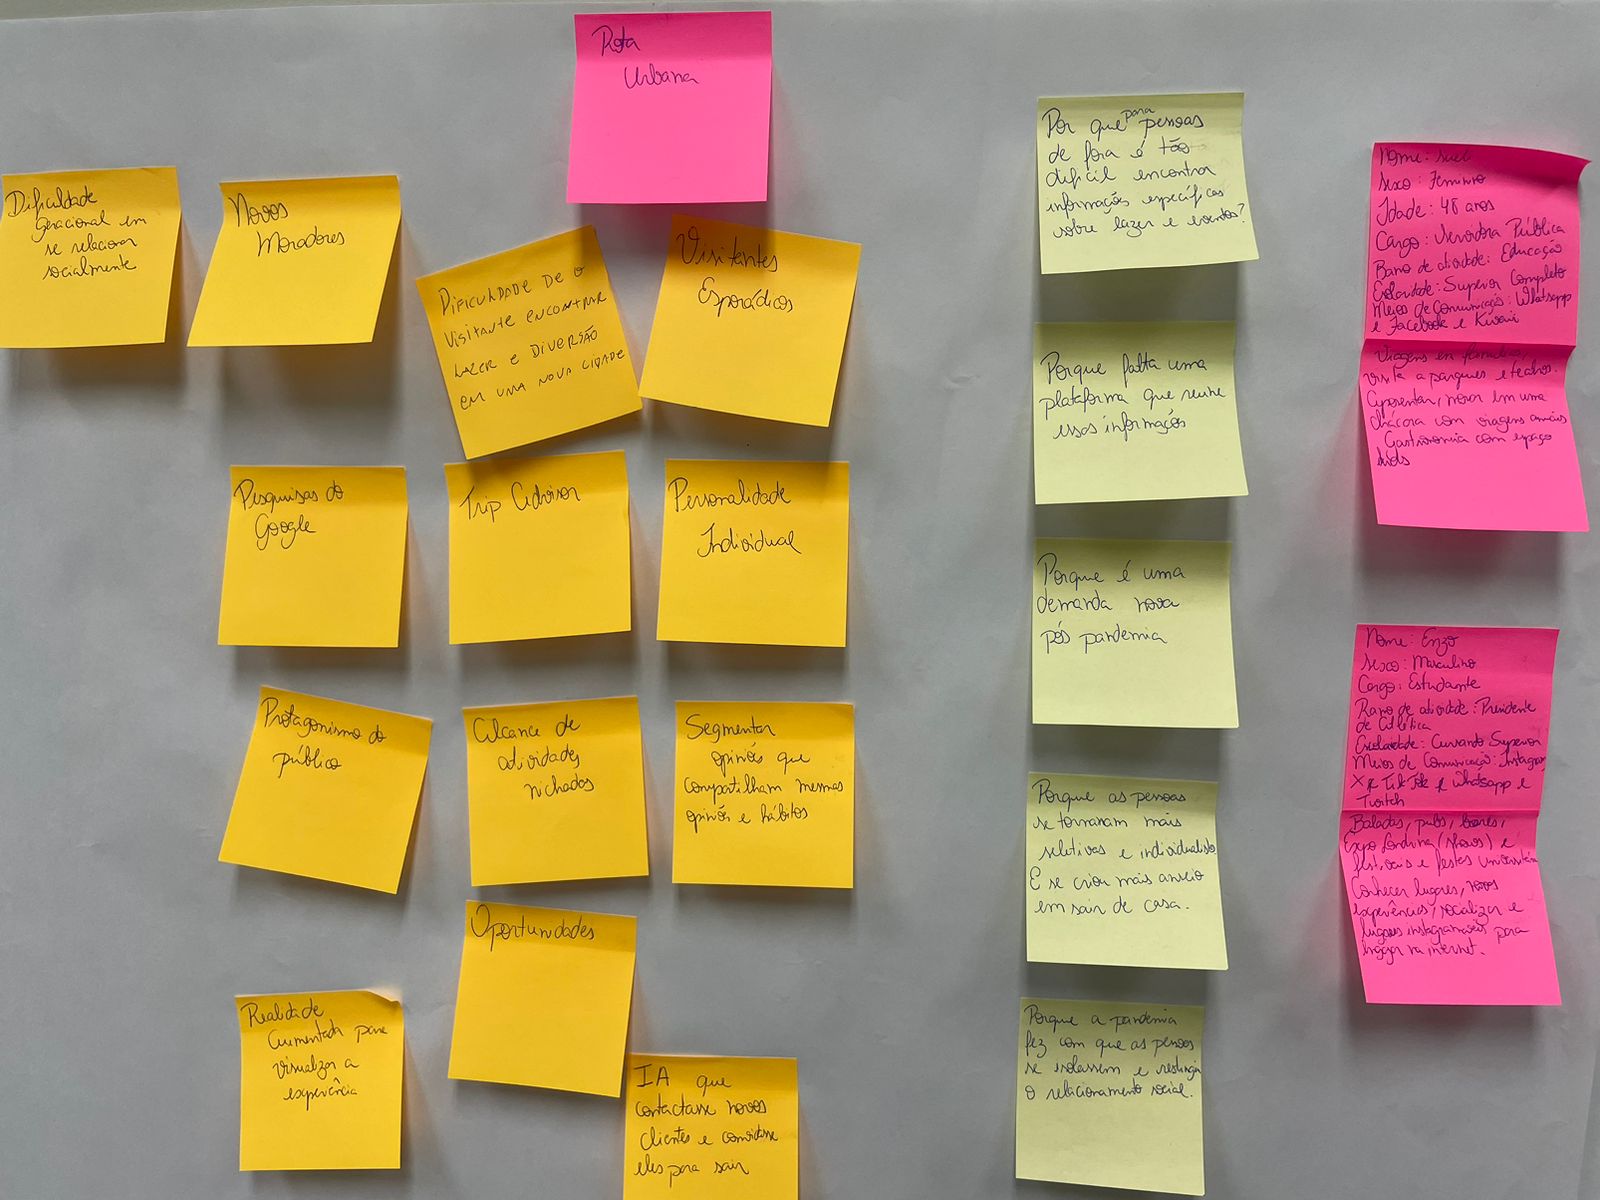 Rota
Urbana
Dificuldade
Geracional em
se relacionar
socialmente
Novos
Moradores
DIFICULDADE DE O
VISITANTE ENCONTRAR
LAZER E DIVERSÃO
EM UMA NOVA CIDADE
Visitantes
Esporádicos
Pesquisas do
Google
Trip Advisor
Personalidade
Individual
Protagonismo do
público
Alcance de
atividades
nichadas
Segmentar
opiniões que
compartilham mesmas
opiniões e hábitos
Oportunidades
Realidade
Aumentada para
visualizar a
experiência
IA que
contactasse novos
clientes e convidasse
eles para sair
Por que para pessoas
de fora é tão
dificil encontrar
informações específicas
sobre lazer e eventos?
Porque falta uma
plataforma que reune
essas informações
Porque é uma
demanda nova
pós pandemia
Porque as pessoas
se tornaram mais
seletivas e individualistas
E se criou mais anseio
em sair de casa.
Porque a pandemia
fez com que as pessoas
se isolassem e restringir
o relacionamento social.
Nome: Sueli
Sexo: Feminino
Idade: 48 anos
Cargo: Servidora Pública
Ramo de atividade: Educação
Escolaridade: Superior Completo
Meios de Comunicação: Whatsapp
e Facebook e Kwai
Viagens em família,
visita a parques e teatros.
Aposentar, morar em uma
chácara com viagens anuais
Gastronomia com espaço
kids
Nome: Enzo
Sexo: Masculino
Cargo: Estudante
Ramo de atividade: Presidente
de Atlética
Escolaridade: Cursando Superior
Meios de Comunicação: Instagram
X e TikTok e Whatsapp e
Twitch
Baladas, pubs, bares,
Expo Londrina (shows) e
festivais e festas universitárias
Conhecer lugares, novas
experiências, socializar e
lugares instagramáveis para
na internet.